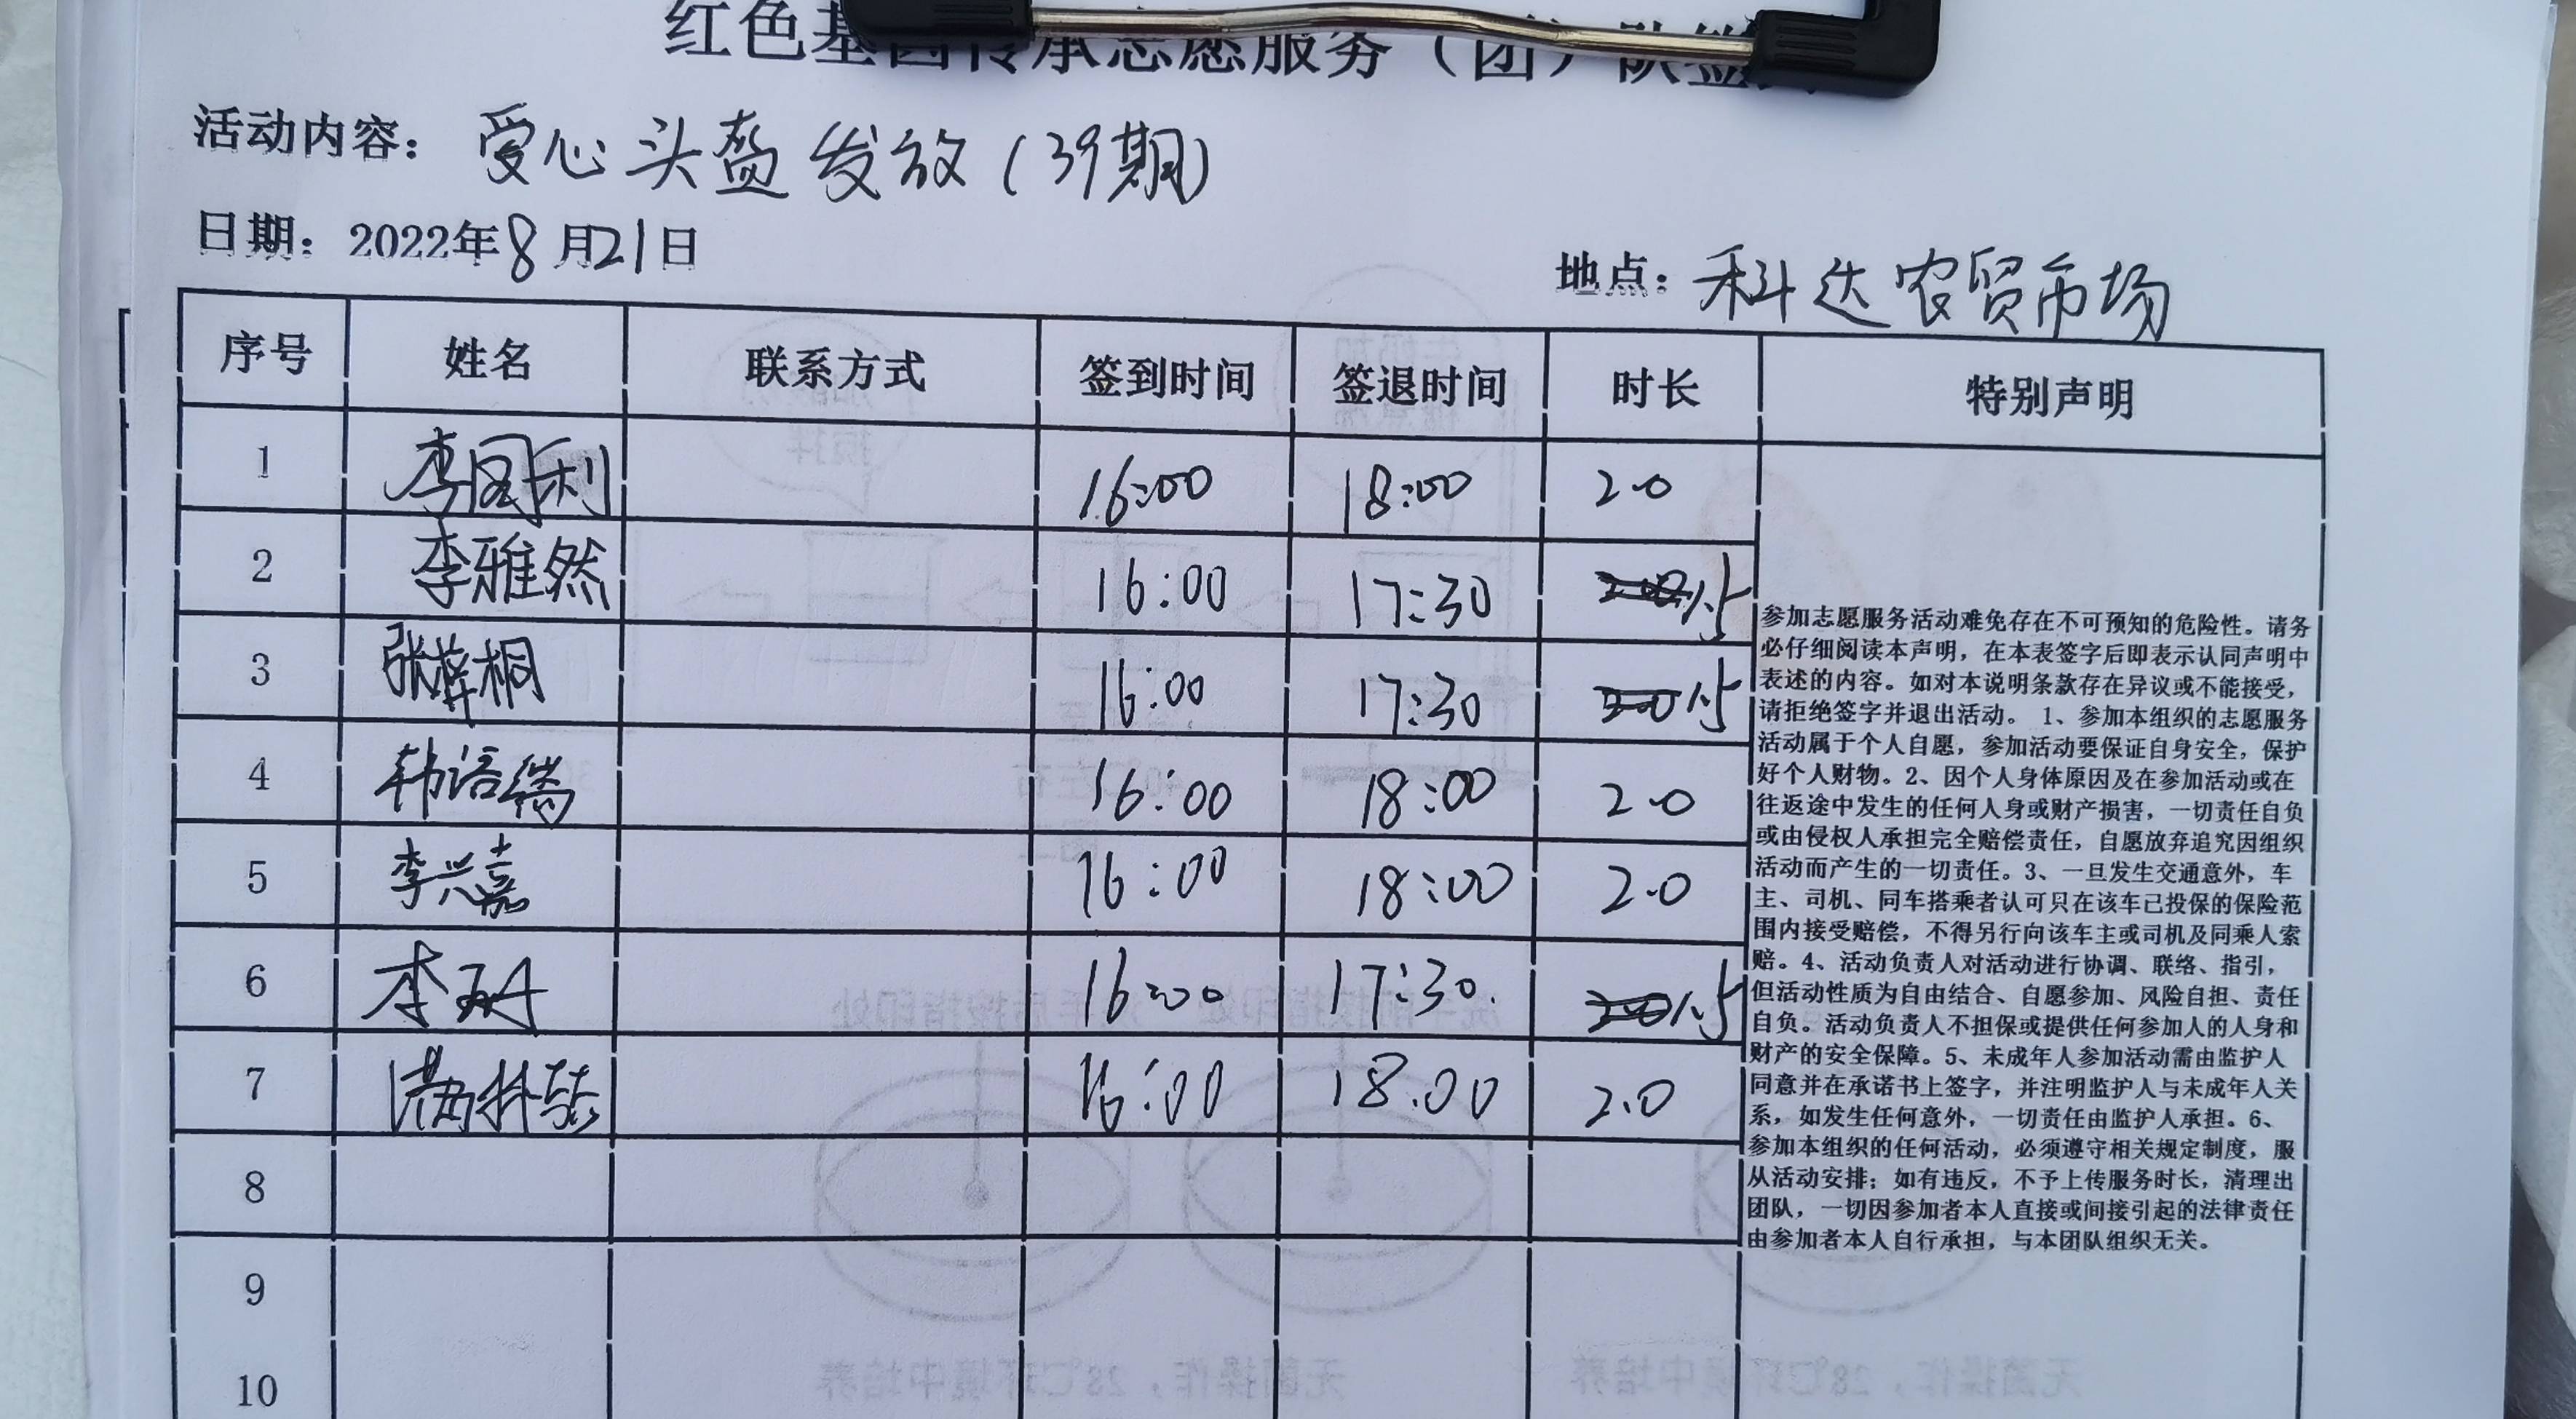 红色基因传承志愿服务（团）队签
活动内容：爱心头盔发放(39期)
日期：2022年8月21日
地点：科达农贸市场
序号 姓名 联系方式 签到时间 签退时间 时长 特别声明
1 李国利 16:00 18:00 2.0
2 李雅然 16:00 17:30 1.5
3 张 桐 16:00 17:30 1.5
4 韩语 16:00 18:00 2.0
5 李兴嘉 16:00 18:00 2.0
6 李 16:00 17:30. 1.5
7 16:00 18.00 2.0
8
9
10
参加志愿服务活动难免存在不可预知的危险性。请务
必仔细阅读本声明，在本表签字后即表示认同声明中
表述的内容。如对本说明条款存在异议或不能接受，
请拒绝签字并退出活动。 1、参加本组织的志愿服务
活动属于个人自愿，参加活动要保证自身安全，保护
好个人财物。2、因个人身体原因及在参加活动或在
往返途中发生的任何人身或财产损害，一切责任自负
或由侵权人承担完全赔偿责任，自愿放弃追究因组织
活动而产生的一切责任。3、一旦发生交通意外，车
主、司机、同车搭乘者认可只在该车已投保的保险范
围内接受赔偿，不得另行向该车主或司机及同乘人索
赔。4、活动负责人对活动进行协调、联络、指引，
但活动性质为自由结合、自愿参加、风险自担、责任
自负。活动负责人不担保或提供任何参加人的人身和
财产的安全保障。5、未成年人参加活动需由监护人
同意并在承诺书上签字，并注明监护人与未成年人关
系，如发生任何意外，一切责任由监护人承担。6、
参加本组织的任何活动，必须遵守相关规定制度，服
从活动安排；如有违反，不予上传服务时长，清理出
团队，一切因参加者本人直接或间接引起的法律责任
由参加者本人自行承担，与本团队组织无关。